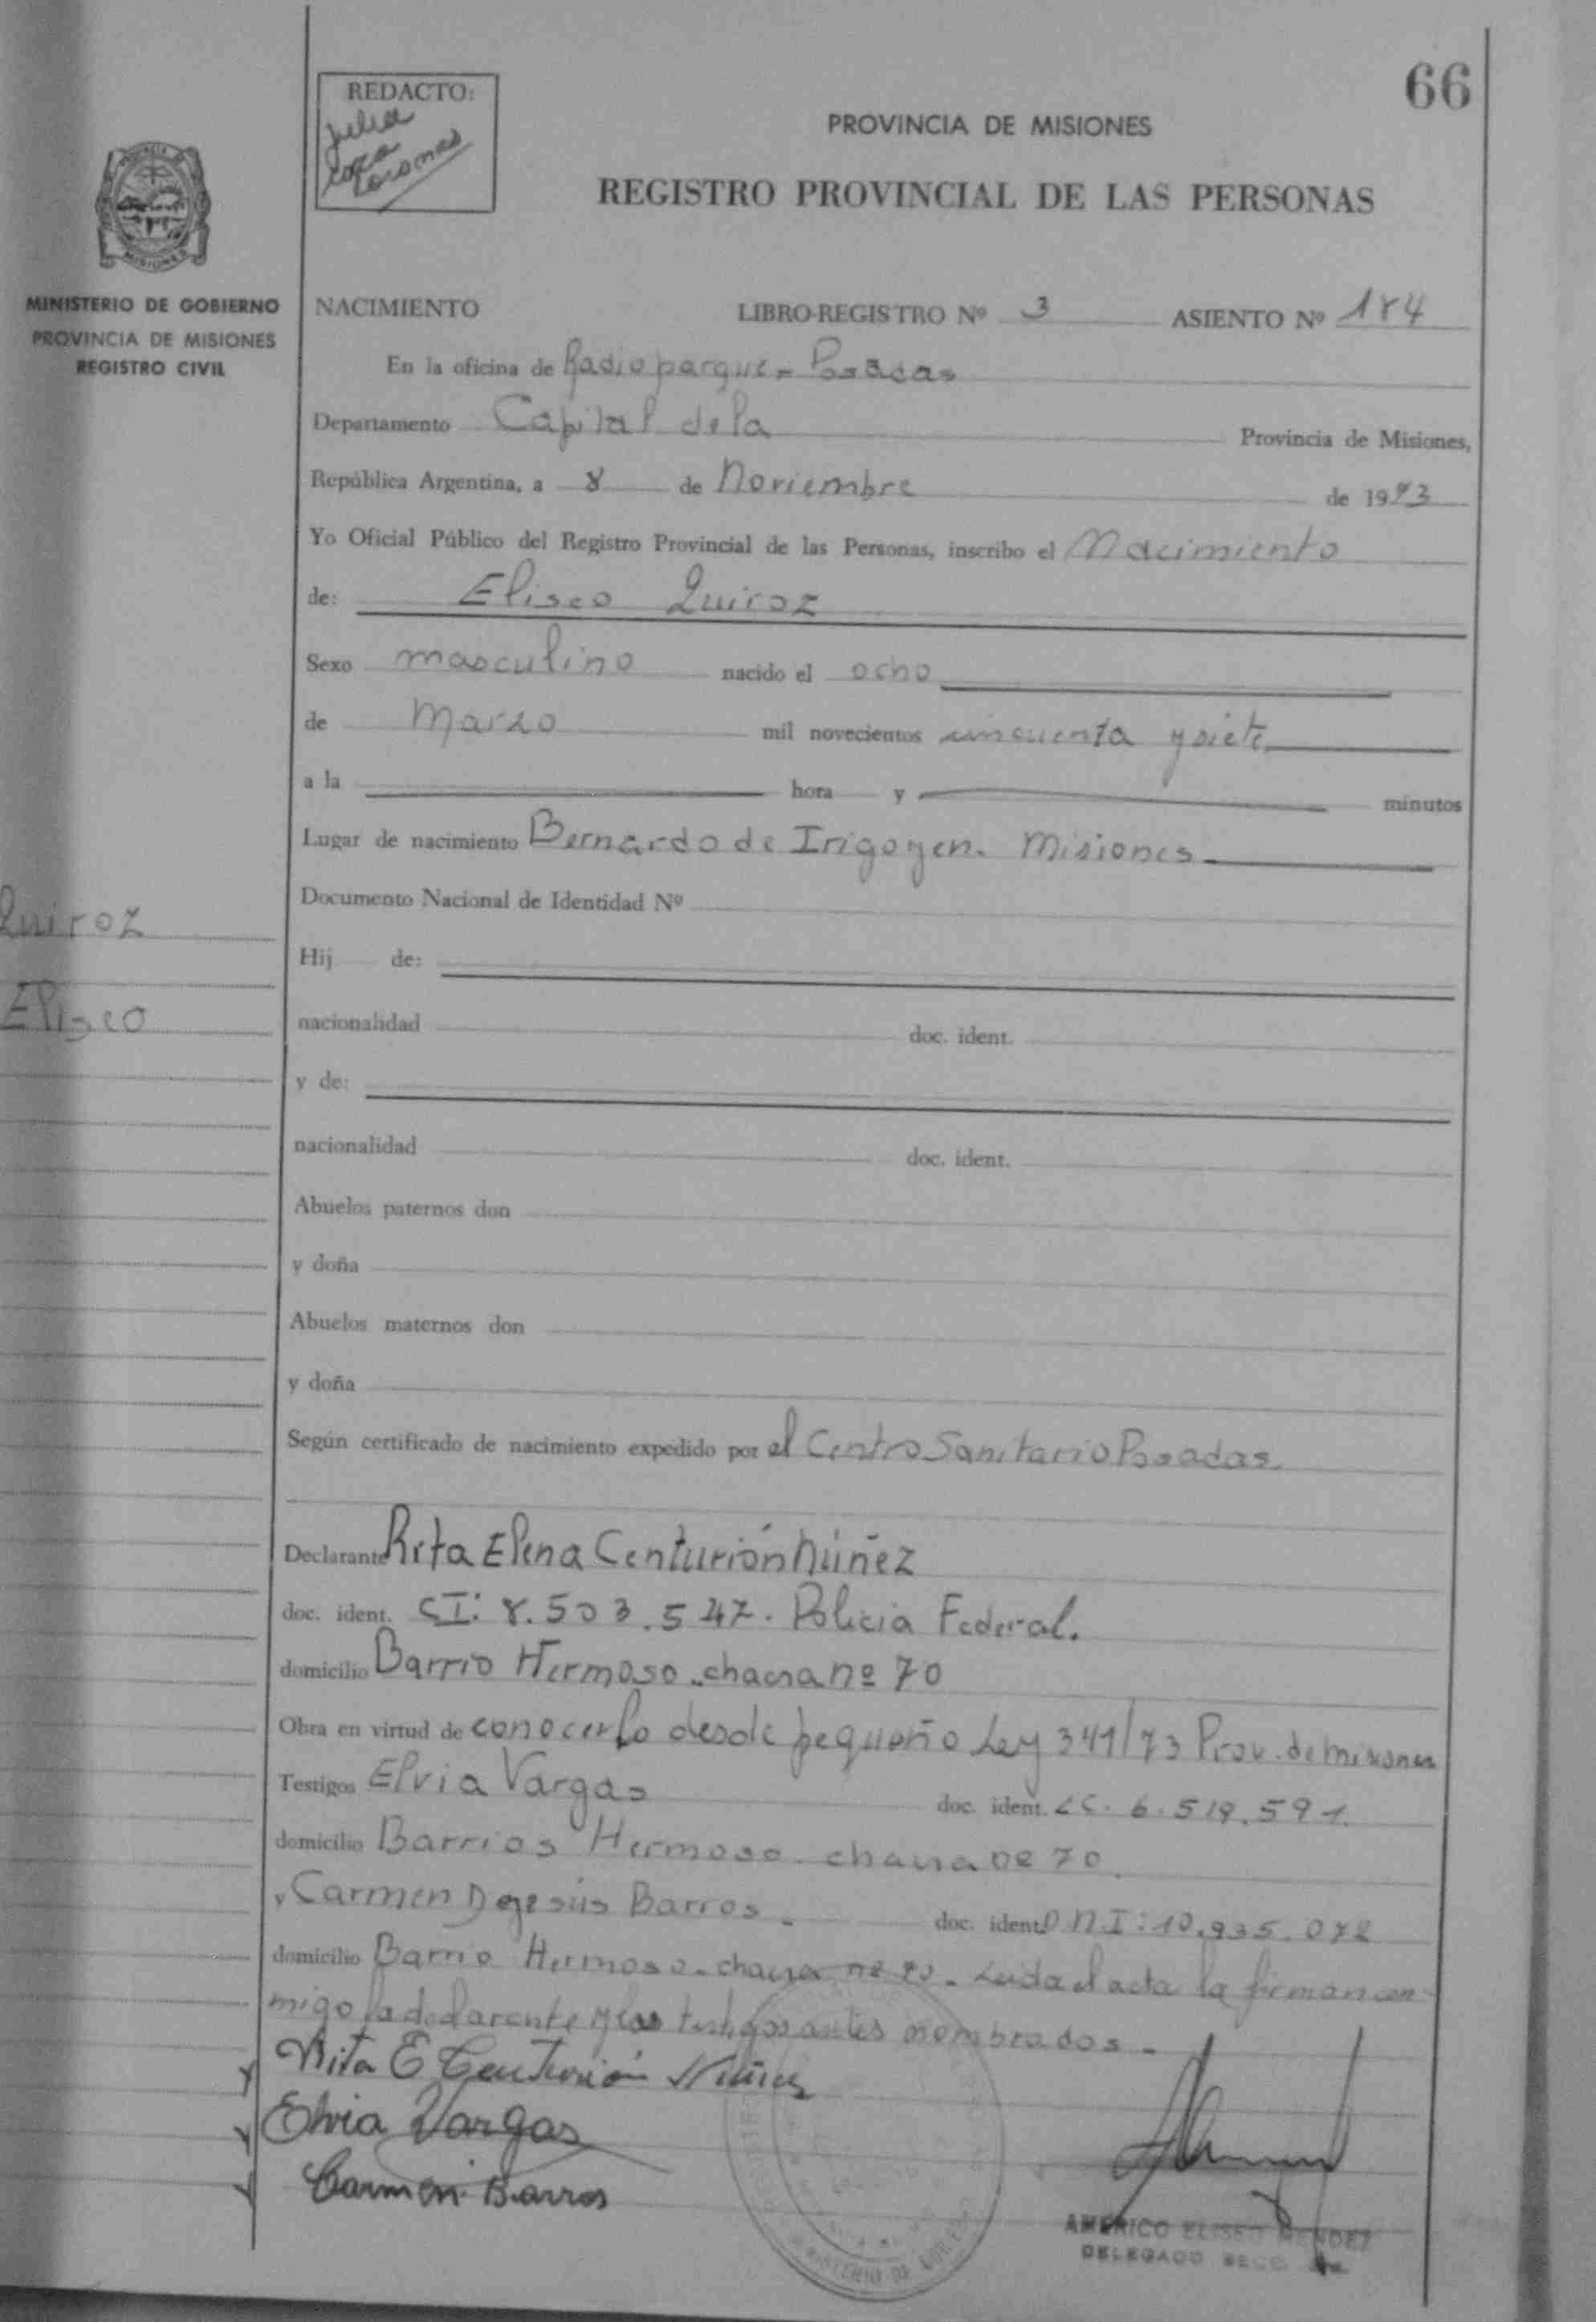 66
REDACTO:
Julia
PROVINCIA DE MISIONES
REGISTRO PROVINCIAL DE LAS PERSONAS
PROVINCIA DE
MISIONES
MINISTERIO DE GOBIERNO
PROVINCIA DE MISIONES
REGISTRO CIVIL
NACIMIENTO LIBRO-REGISTRO Nº 3 ASIENTO Nº 184
En la oficina de Radio parque - Posadas
Departamento Capital de la Provincia de Misiones,
República Argentina, a 8 de Noviembre de 1973
Yo Oficial Público del Registro Provincial de las Personas, inscribo el Nacimiento
de: Eliseo Quiroz
Sexo masculino nacido el ocho
de Marzo mil novecientos cincuenta y siete
a la hora y minutos
Lugar de nacimiento Bernardo de Irigoyen. Misiones
Documento Nacional de Identidad Nº
Quiroz
Hij de:
Eliseo
nacionalidad doc. ident.
y de:
nacionalidad doc. ident.
Abuelos paternos don
y doña
Abuelos maternos don
y doña
Según certificado de nacimiento expedido por el Centro Sanitario Posadas
Declarante Rita Elena Centurión Núñez
doc. ident. CI: 8.503.547. Policia Federal.
domicilio Barrio Hermoso. chacra nº 70
Obra en virtud de conocerlo desde pequeño Ley 341/73 Prov. de misiones
Testigos Elvia Vargas doc. ident. LC. 6.519.591.
domicilio Barrios Hermoso. chacra nº 70.
y Carmen Dejesús Barros - doc. ident. D.N.I: 10.935.072
domicilio Barrio Hermoso. chacra nº 70. Leida el acta la firman con-
migo la declarante y los testigos antes nombrados.-
Rita E Centurión Núñez
Elvia Vargas
Carmen Barros
MINISTERIO DE GOBIERNO
AMERICO ELISEO MENDEZ
DELEGADO SECC